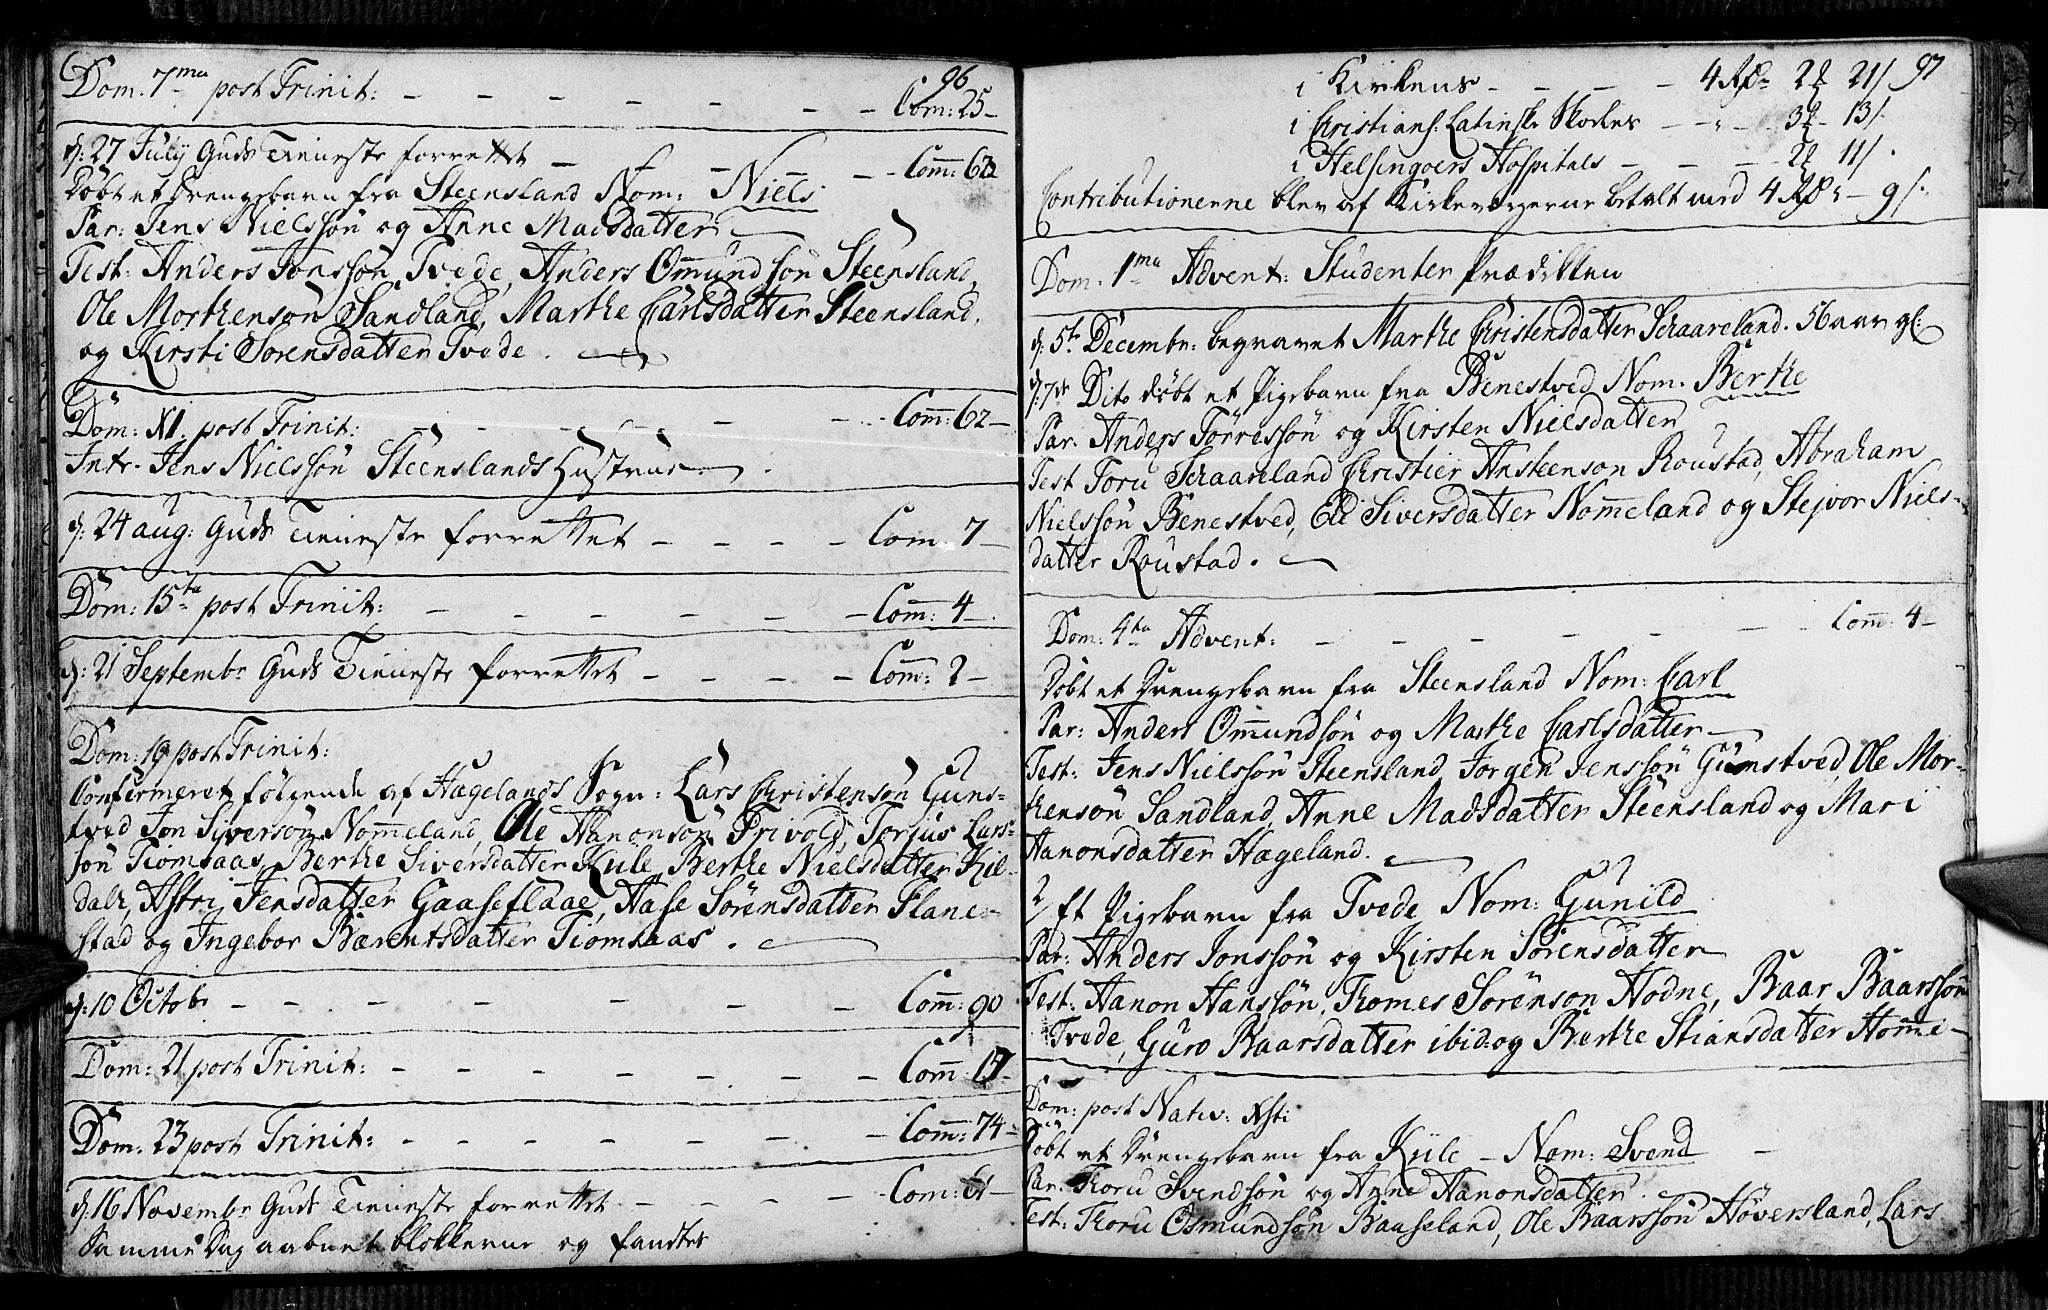 96
Dom. 7ma post Trinit: - - - - - - - Com: 25 -
d: 27 July Guds Tieneste forrettet - - - - - Com̅: 62
Døbt et Drengebarn fra Steensland Nom: Niels
Par: Jens Nielssøn og Anne Madsdatter
Test: Anders Jonssøn Tvede, Anders Om̅undsøn Steensland,
Ole Morthensøn Sandland, Marthe Carlsdatter Steensland,
og Kirsti Sørensdatter Tvede.
Dom: XI. post Trinit: - - - - - - Com̅: 62 -
Intr. Jens Nielssøn Steenslands Hustrue
d: 24 aug: Guds Tieneste forrettet - - - - Com. 7 -
Dom: 15ta post Trinit: - - - - - Com̅: 4 -
d: 21 Septembr Guds Tieneste forrettet - - - - Com̅: 2 -
Dom: 19 post Trinit:
Confirmeret følgende af Hægelands Sogn: Lars Christensøn Guns-
tved Jon Siversøn Nom̅eland, Ole Aanonsøn Privold, Torjus Lars-
søn Tiomsaas, Berthe Siversdatter Kule, Berthe Nielsdatter Kil-
dale, Astri Jensdatter Gaaseflaae, Aase Sørensdatter Flane-
stad og Ingebor Bærentsdatter Tiomsaas.
d: 10 Octobr - - - - - - Com̅: 90
Dom: 21 post Trinit: - - - - - - - Com̅: 17
Dom: 23 post Trinit: - - - - - - Com̅: 74 -
d: 16 Novembr Guds Tieneste forrettet - - - - Com: 61 -
Samme Dag aabnet blokkerne og fandtes
97
i Kirkens - - - - 4 Rdr 2 21 /
i Christians: Latinske Skoeles - - - 3 - 13 /.
i Helsingoers Hospitals - - - 2 11 /.
Contributionerne blev af Kirkeværgerne betalt med 4 Rdr - 9 /.
Dom. 1ma Advent: Studenter Prædikken
d: 5te Decembr: begravet Marthe Christensdatter Schaareland. 56 aar gl:
d: 7de Dito døbt et Pigebarn fra Benestved Nom. Berthe
Par. Anders Tørressøn og Kirsten Nielsdatter
Test Toru Schaareland Christier Ansteensøn Roustad, Abraham
Nielssøn Benestved, Eli Siversdatter Nom̅eland og Stejvor Niels-
datter Roustad.
Dom: 4ta Advent: - - - - - - Com̅: 4 -
Døbt et Drengebarn fra Steensland Nom: Carl
Par: Anders Om̅undsøn og Marthe Carlsdatter
Test: Jens Nielssøn Steensland, Jørgen Jenssøn Gunstved, Ole Mor-
thensøn Sandland, Anne Madsdatter Steensland og Mari
Aanonsdatter Hægeland.
2 Et Pigebarn fra Tvede Nom: Gunild
Par: Anders Jonssøn og Kirsten Sørensdatter
Test: Aanon Hanssøn, Thomes Sørensøn Hodne, Baar Baarssøn
Tvede, Guro Baarsdatter ibid: og Berthe Stiansdatter Hom̅e -
Dom: post Nativ: Xsti
Døbt et Drengebarn fra Kule - Nom: Svend -
Par: Thoru Svendsøn og Anne Aanonsdatter.
Test: Thoru Osmundsøn Baaseland, Ole Baarssøn Høversland, Lars